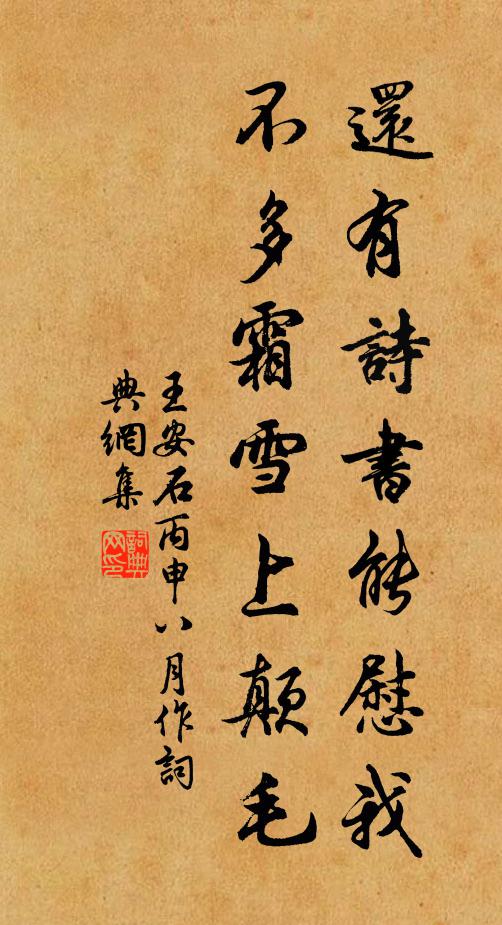 還有詩書能慰我
不多霜雪上顛毛
王安石丙申八月作詞
典網集
詞典
网印